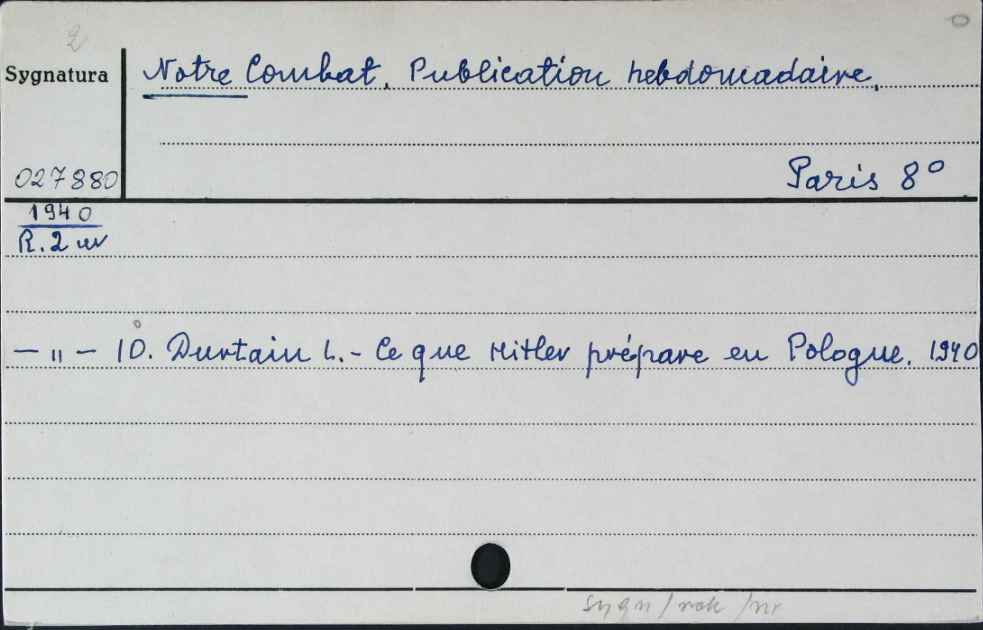 2
Sygnatura
Notre Combat. Publication hebdomadaire.
027880
Paris 8°
1940
R. 2
— " — 10. Durtain L. - Ce que Hitler prépare en Pologne. 1940
sygn/rok/nr